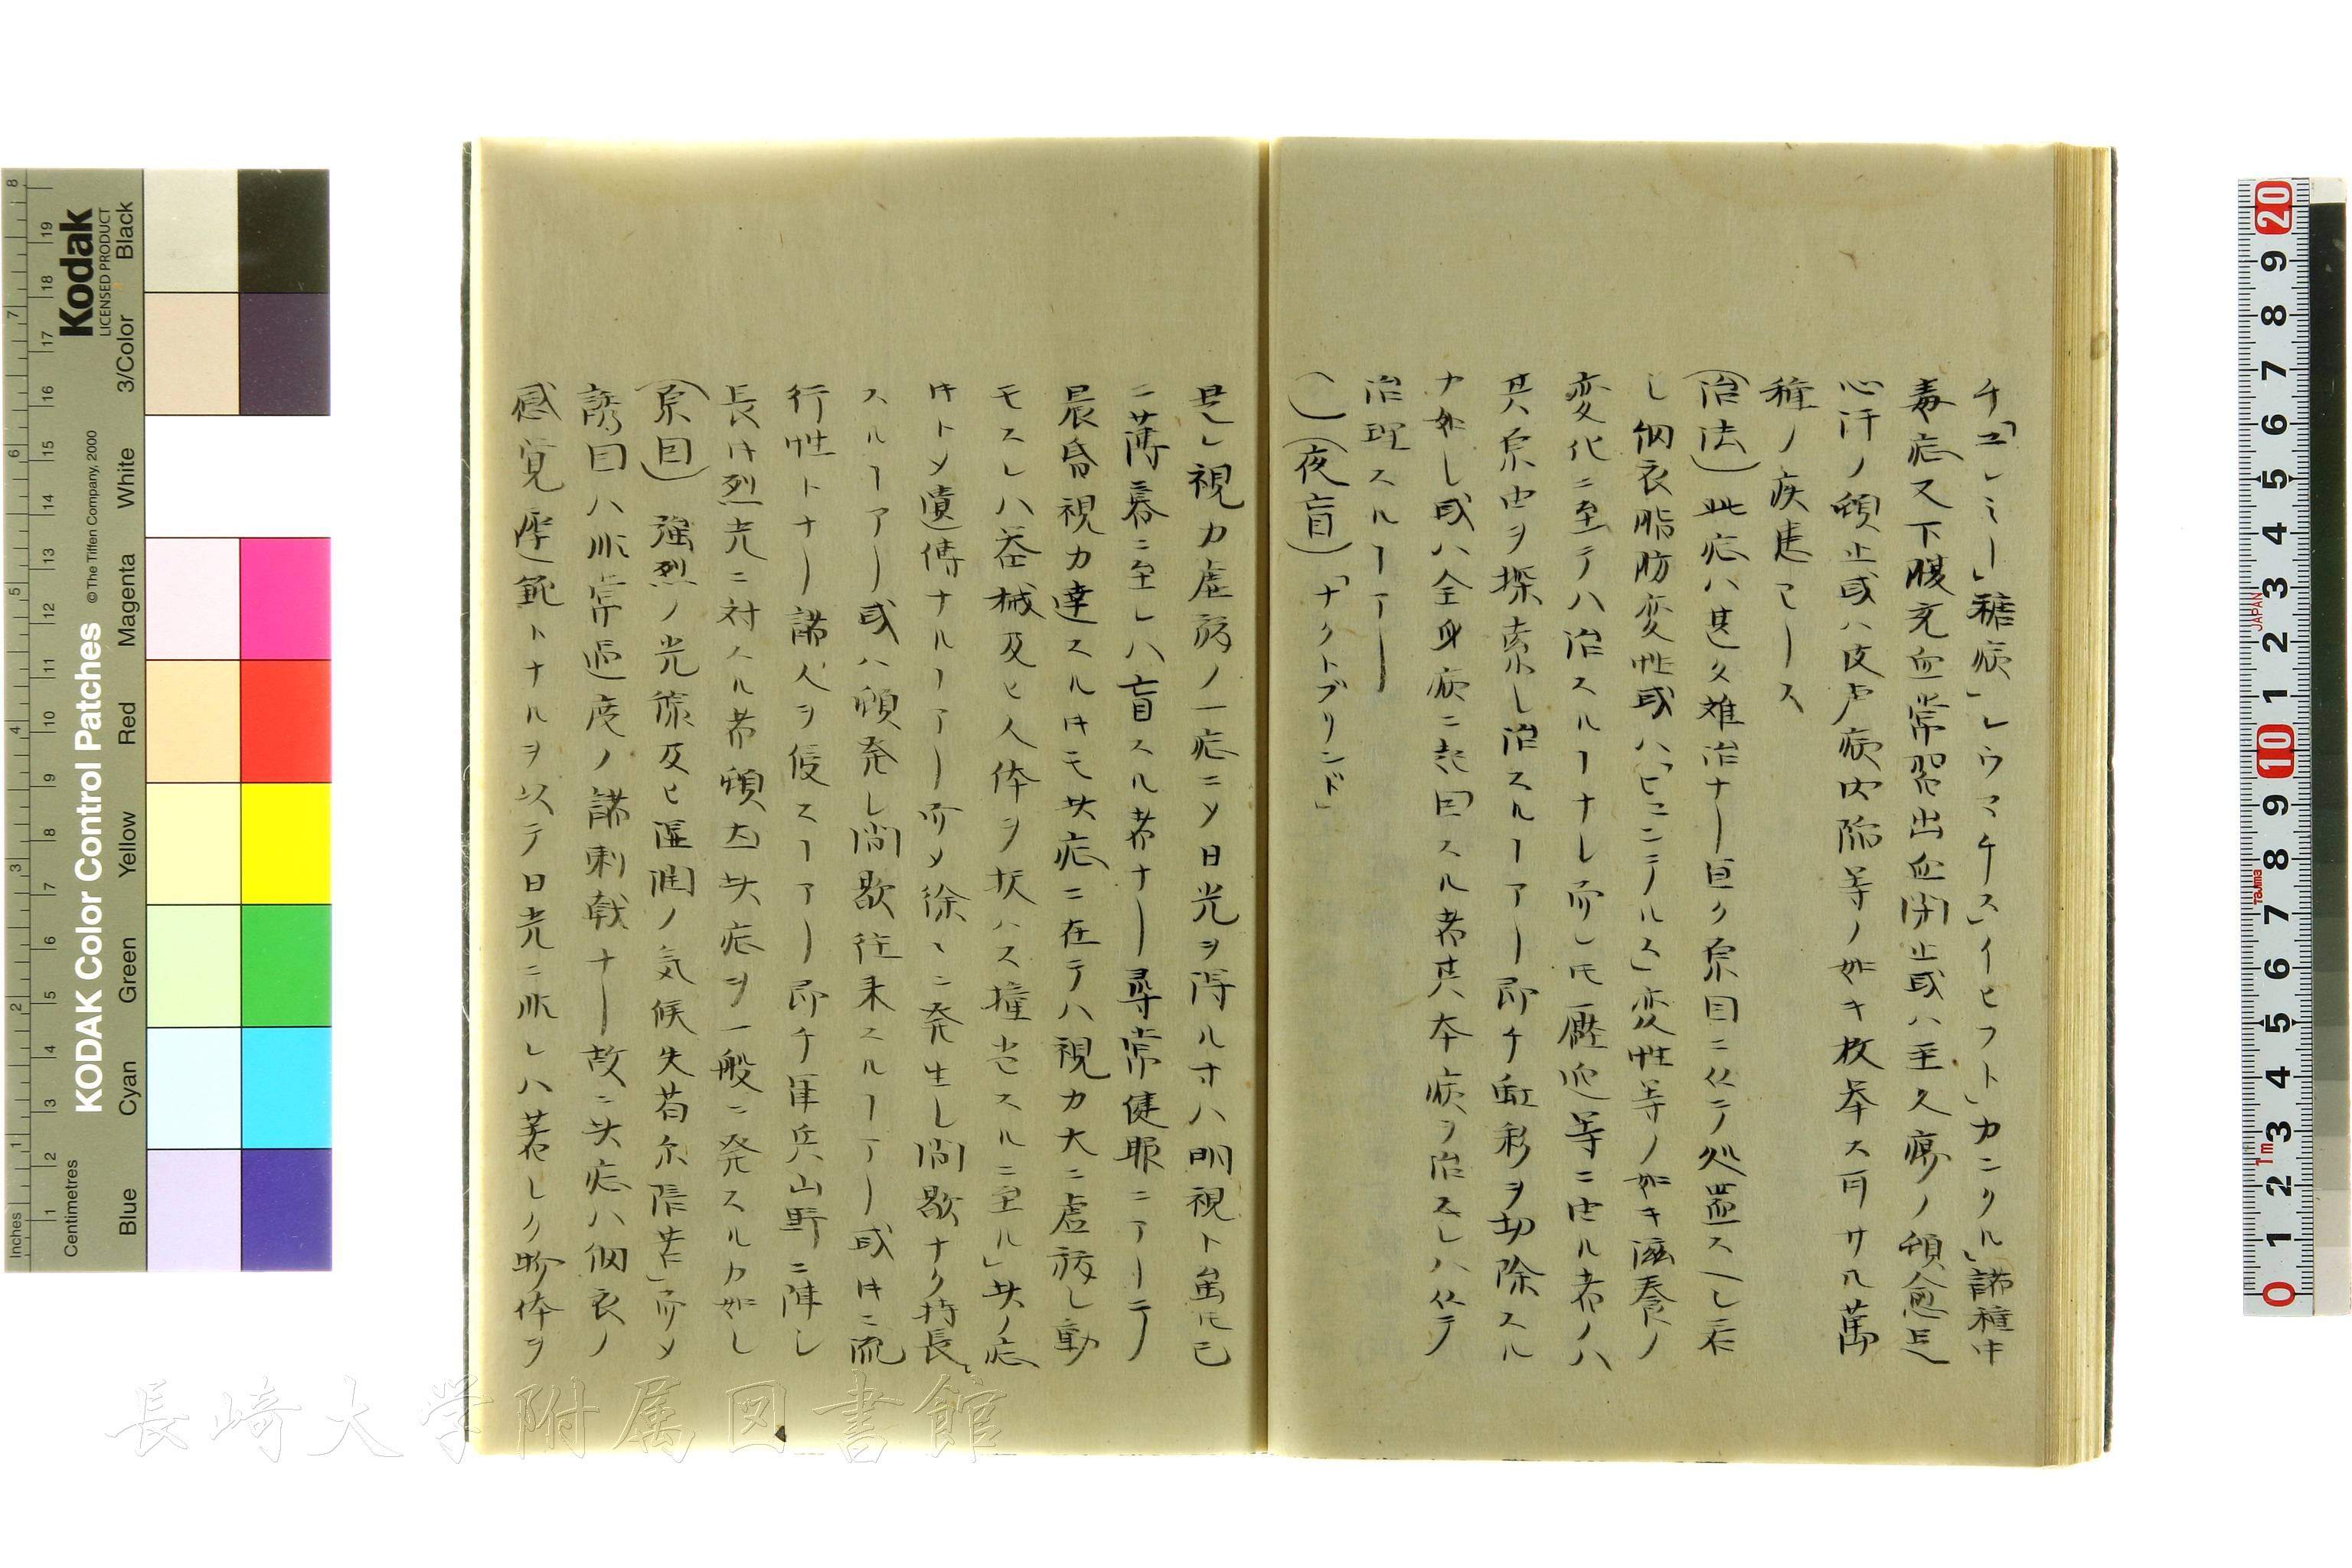 チ「ユレミー」糖病」レウマチス」イヒフト」カンクル」諸種中
毒症又下腹充血常習出血閉止或ハ至久瘍ノ頓愈足
心汗ノ頓止或ハ皮膚病内陥等ノ如キ枚挙ス可サル萬
種ノ疾患コース
(治法)此症ハ甚タ難治ナー宜ク原因ニ从テ処置スヘし
し網衣脂肪変性或ハ「ヒニンテルス」変性等ノ如キ滋養ノ
変化ニ至テハ治スルーナし而し𪜈壓迫等ニ由ル者ノハ
其原由ヲ探索し治スルーアー即チ虹彩ヲ切除スル
カ如し或ハ全身病ニ起因スル者其本病ヲ治スレハ从テ
治理スルーアー
(一)(夜盲)「ナクトブリンド」
是レ視力虚弱ノ一症ニ〆日光ヲ得ル寸ハ明視ト雖𪜈已
ニ薄暮ニ至レハ盲スル者ナー尋常健眼ニアーテ
晨昏視力達スル𪜈モ此症ニ在テハ視力大ニ虚弱し動
モスレハ器械及ヒ人体ヲ択ハス撞突スルニ至ル」此ノ症
𪜈ト〆遺傳ナルーアー而〆徐々ニ発生し間歇ナク持長
スルーアー或ハ頓発し間歇往来スルーアー或𪜈ニ流
行性トナー諸人ヲ侵スーアー即チ軍兵山野ニ陣し
長𪜈烈光ニ対スル者頓ニ此症ヲ一般ニ発スルカ如し
(原因) 強烈ノ光線及ヒ湿潤ノ気候失苟尓陪苦」而〆
誘因ハ非常過度ノ諸刺戟ナー故ニ此症ハ網衣ノ
感覚遅鈍トナルヲ以テ日光ニ非レハ著しク物体ヲ
Kodak
LICENSED PRODUCT
KODAK Color Control Patches
© The Tiffen Company, 2000
Inches
Centimetres
Blue
Cyan
Green
Yellow
Red
Magenta
White
3/Color
Black
JAPAN
Tajima
1m
長崎大学附属図書館